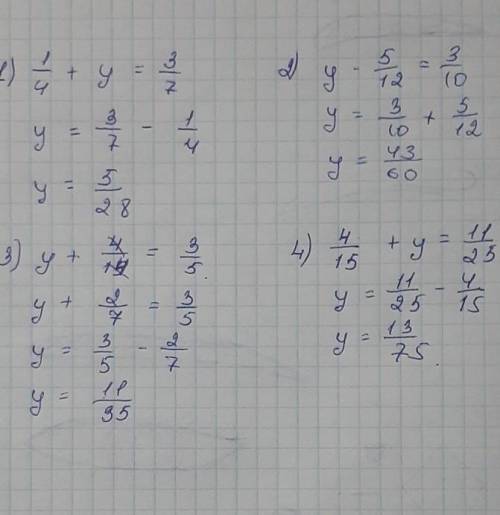 1) 1/4 + y = 3/7
y = 3/7 - 1/4
y = 5/28
2) y - 5/12 = 3/10
y = 3/10 + 5/12
y = 43/60
3) y + 4/14 = 3/5.
y + 2/7 = 3/5
y = 3/5 - 2/7
y = 11/35
4) 4/15 + y = 11/25
y = 11/25 - 4/15
y = 13/75.